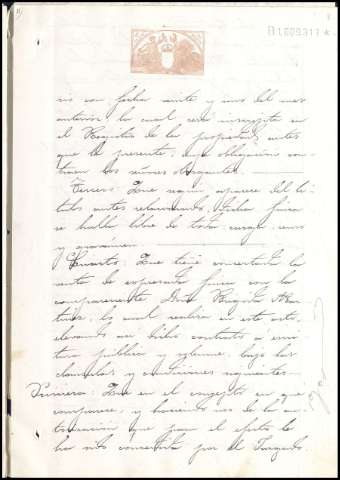 B1609311*
rio con fecha veinte y uno del mes
anterior la cual será inscripta en
el Registro de la propiedad antes
que la presente, cuya obligación con-
traen los señores
Tercero: Que según aparece del tí-
tulo antes relacionado, dicha finca
se halla libre de toda carga, censo
y gravamen
Cuarto: Que tiene concertada la
venta de expresada finca con la
compareciente Doña
lo cual realiza en este acto,
elevando su dicho contrato a escri-
tura pública y solemne, bajo las
clausulas y condiciones siguientes
Primera: Que en el concepto en que
comparece, y haciendo uso de la au-
torización que para el efecto le
ha sido concedida por el Juzgado